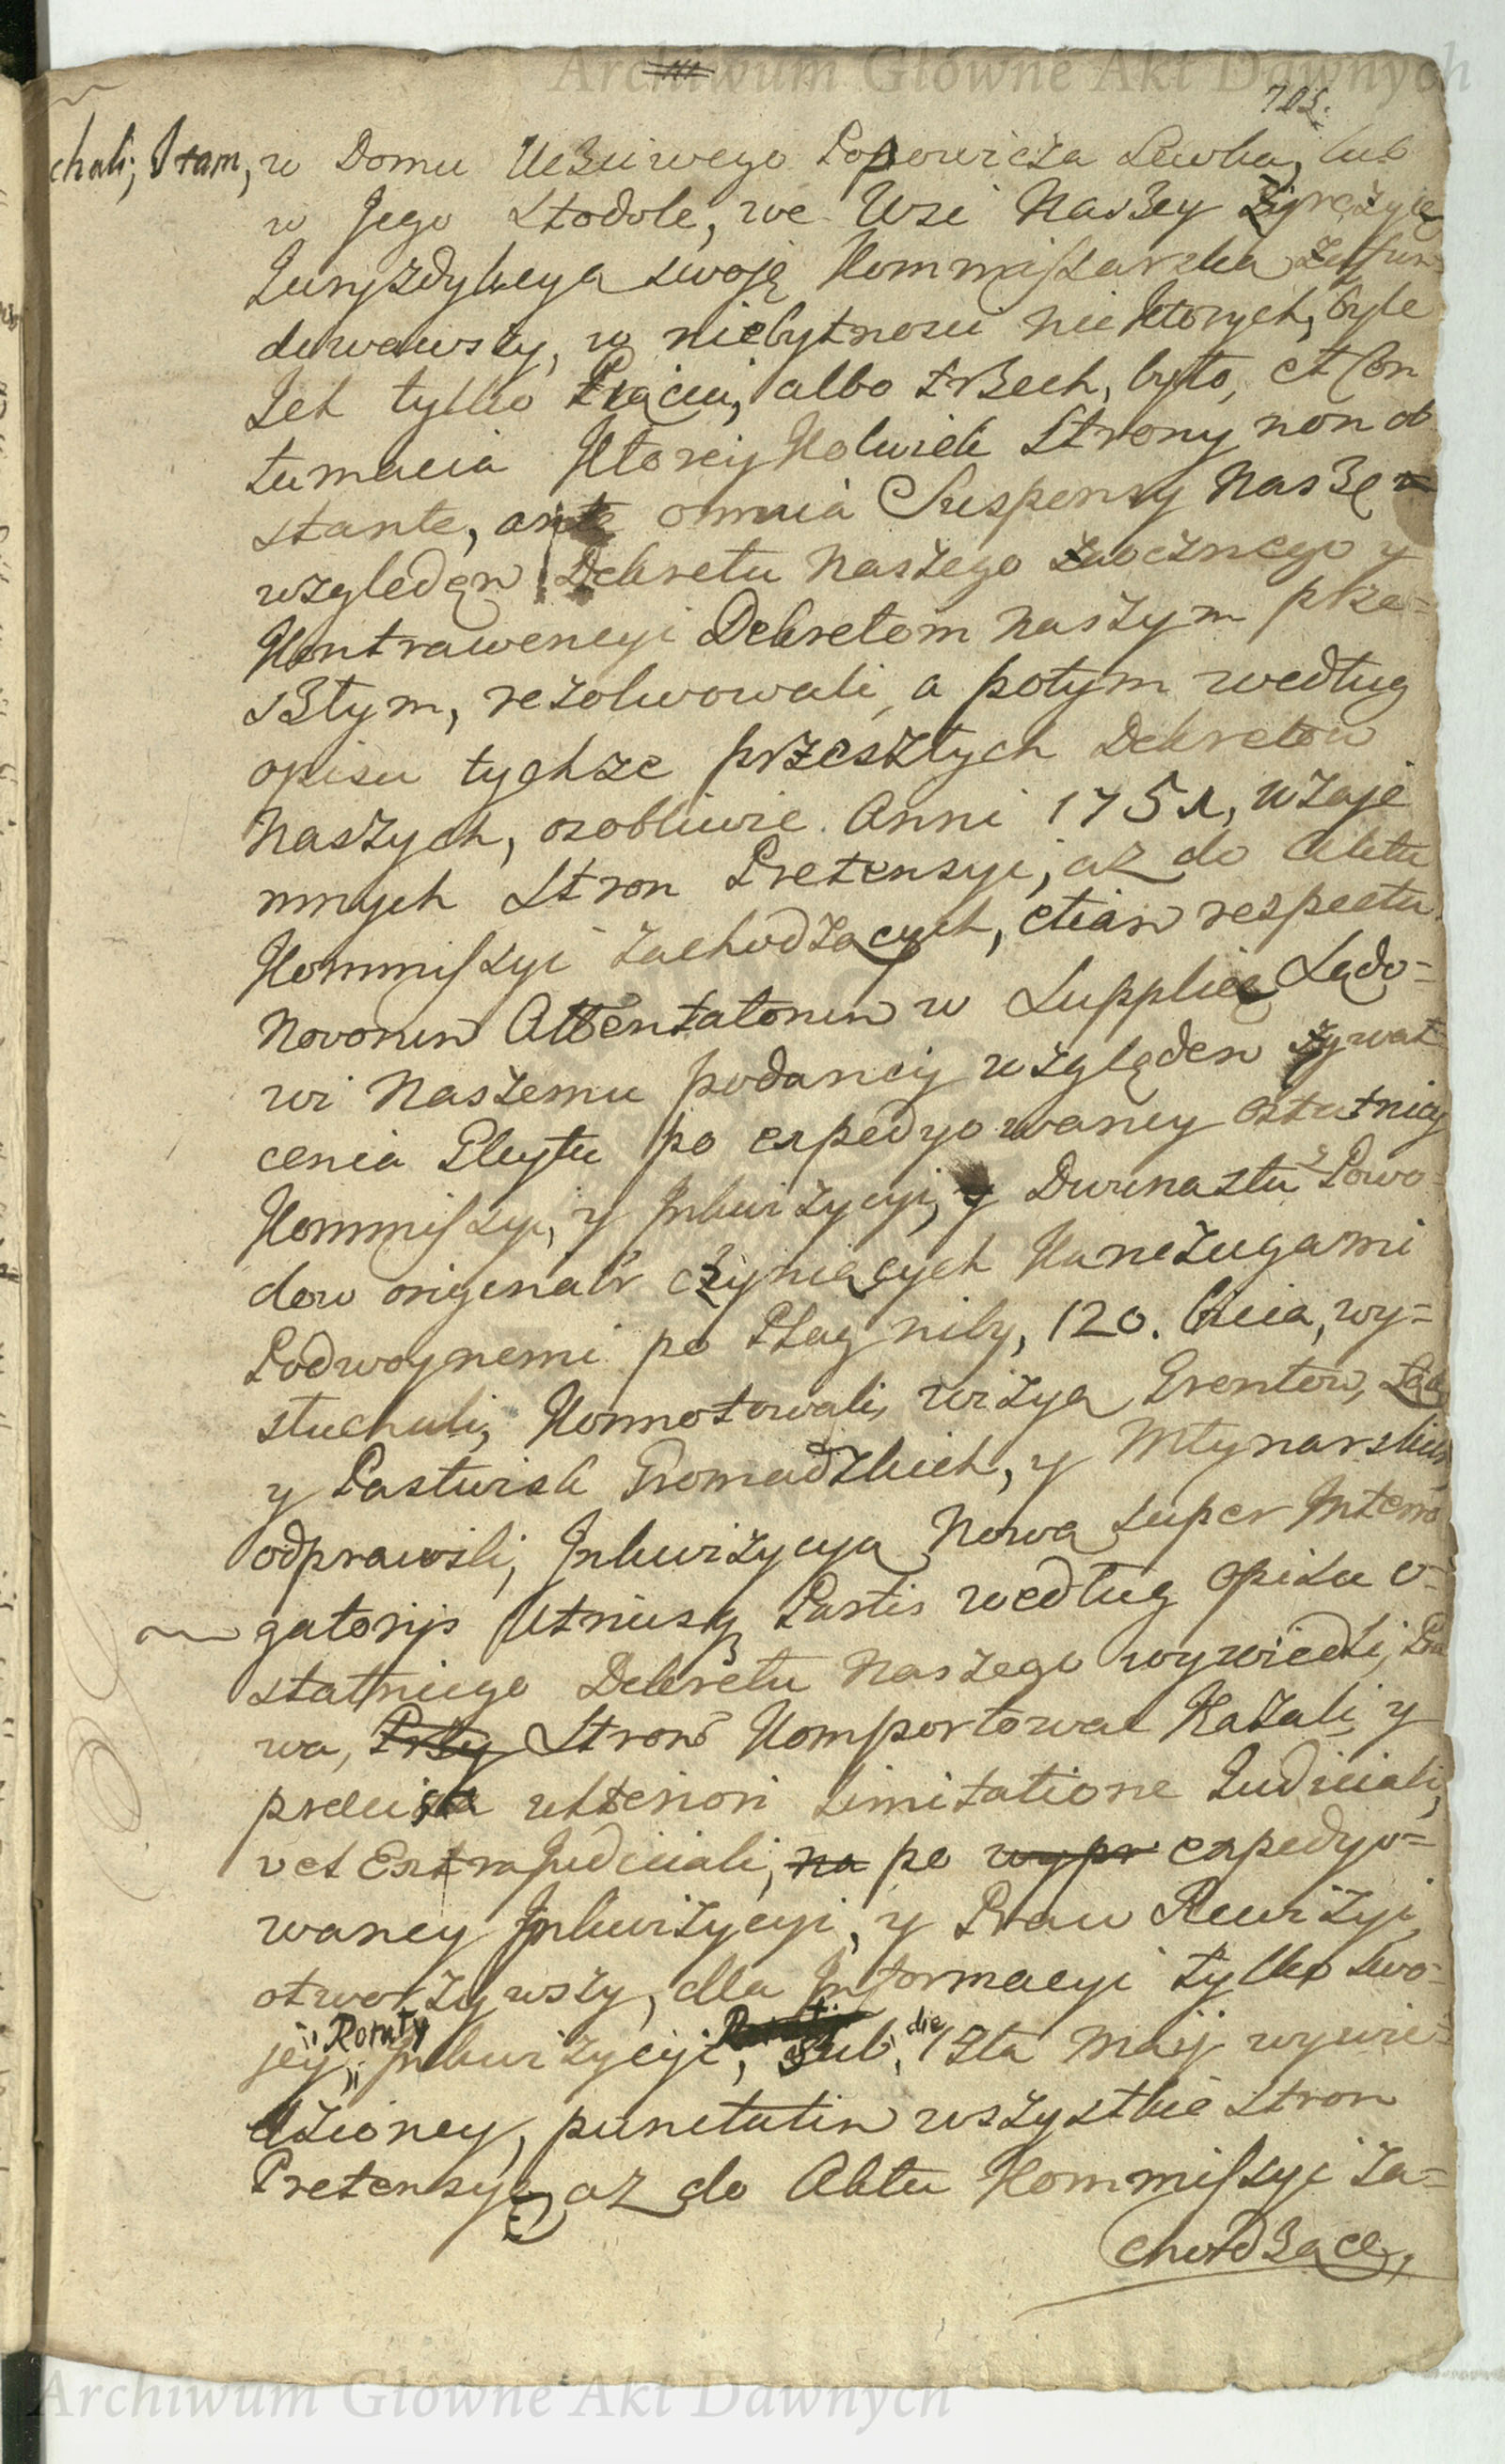 Archiwum Główne Akt Dawnych
705.
chali; I tam, w Domu Uczciwego Popowicza Lewka, lub
w Jego Stodole, we Wsi Naszey
Juryzdykcyą swoję Kommissarską zafun=
dowawszy, w niebytnosci niektorych, byle
Ich tylko Pięciu, albo trzech, było, et Con
tumacia ktoreykolwiek Strony non ob
stante, ante omnia Suspensy Naszę
względem Dekretu Naszego zaocznego y
Kontrawencyi Dekretom Naszym prze=
szłym, rezolwowali, a potym według
opisu tychze przeszłych Dekretow
Naszych, osobliwie Anni 1751, wzaje
mnych Stron Pretensyi, az do Aktu
Kommissyi zachodzących, etiam respectu
Novorum Attentatorum w Supplice Sądo=
wi Naszemu podaney względem zgwał
cenia Glejtu po expedyowaney ostatniey
Kommissyi, y Inkwizycyi, y Dwunastu Powo=
dow originalr czyniących Kanczugami
Podwoynemi po Plag niby, 120. bicia, wy=
słuchali, Konnotowali, wizyą Gruntow, Łąk
y Pastwisk Gromadzkich, y Młynarskich
odprawili, Inkwizycyą Nową super Interro
gatorijs Utriusq Partis według opisu o=
statniego Dekretu Naszego wywiedli, Pra
wa, Przy Stronō Komportowac Kazali, y
precisa ulteriori limitatione Judiciali,
vel Extrajudiciali, na po wypr expedyo=
waney Inkwizycyi, y Praw Rewizyi
otworzywszy, dla Informacyi tylko swo=
jey, Rotuły Inkwizycyi, sub die 1szta Maij wywie=
dzioney, punctatim wszystkie Stron
Pretensye, az do Aktu Kommissyi za=
chodzące,
Archiwum Główne Akt Dawnych